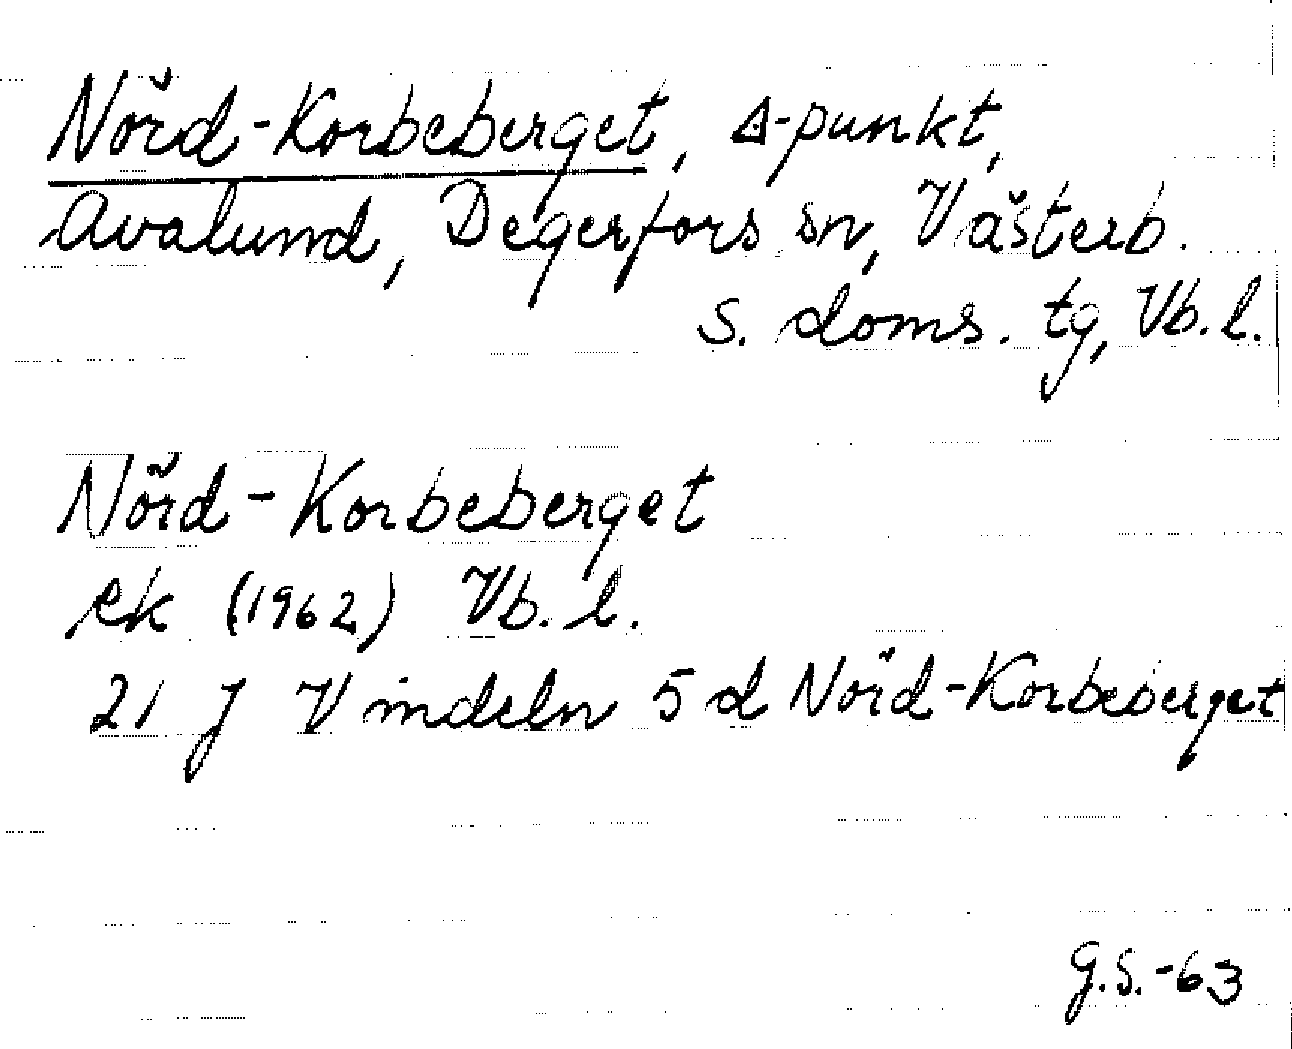 Nörd-Korbeberget, Δ-punkt,
Avalund, Degerfors sn, Västerb.
s. doms. tg, Vb. l.
Nörd-Korbeberget
ek (1962) Vb. l.
21 J Vindeln 5 d Nörd-Korbeberget
G.S.-63